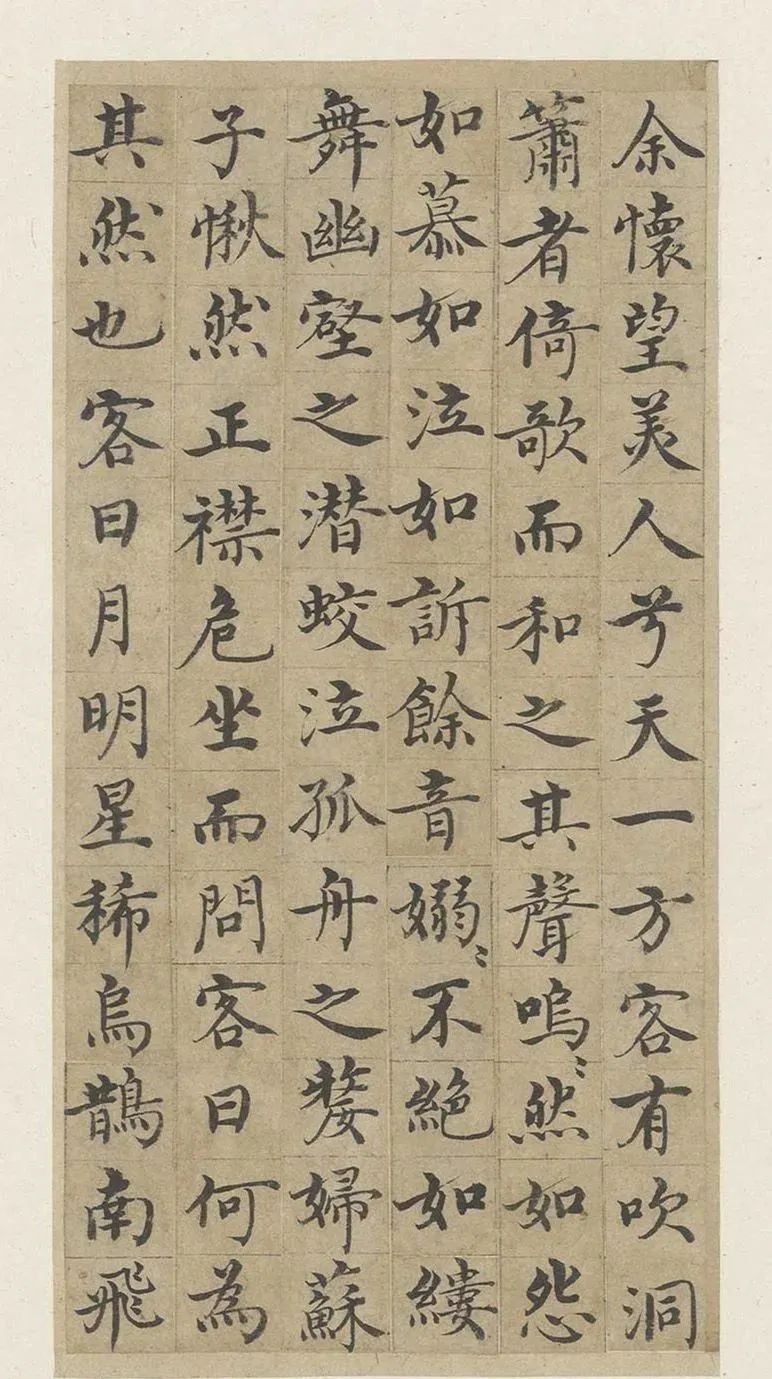 余懷望美人兮天一方客有吹洞
簫者倚歌而和之其聲嗚〻然如怨
如慕如泣如訴餘音嫋〻不絕如縷
舞幽壑之潜蛟泣孤舟之嫠婦蘇
子愀然正襟危坐而問客曰何為
其然也客曰月明星稀烏鵲南飛